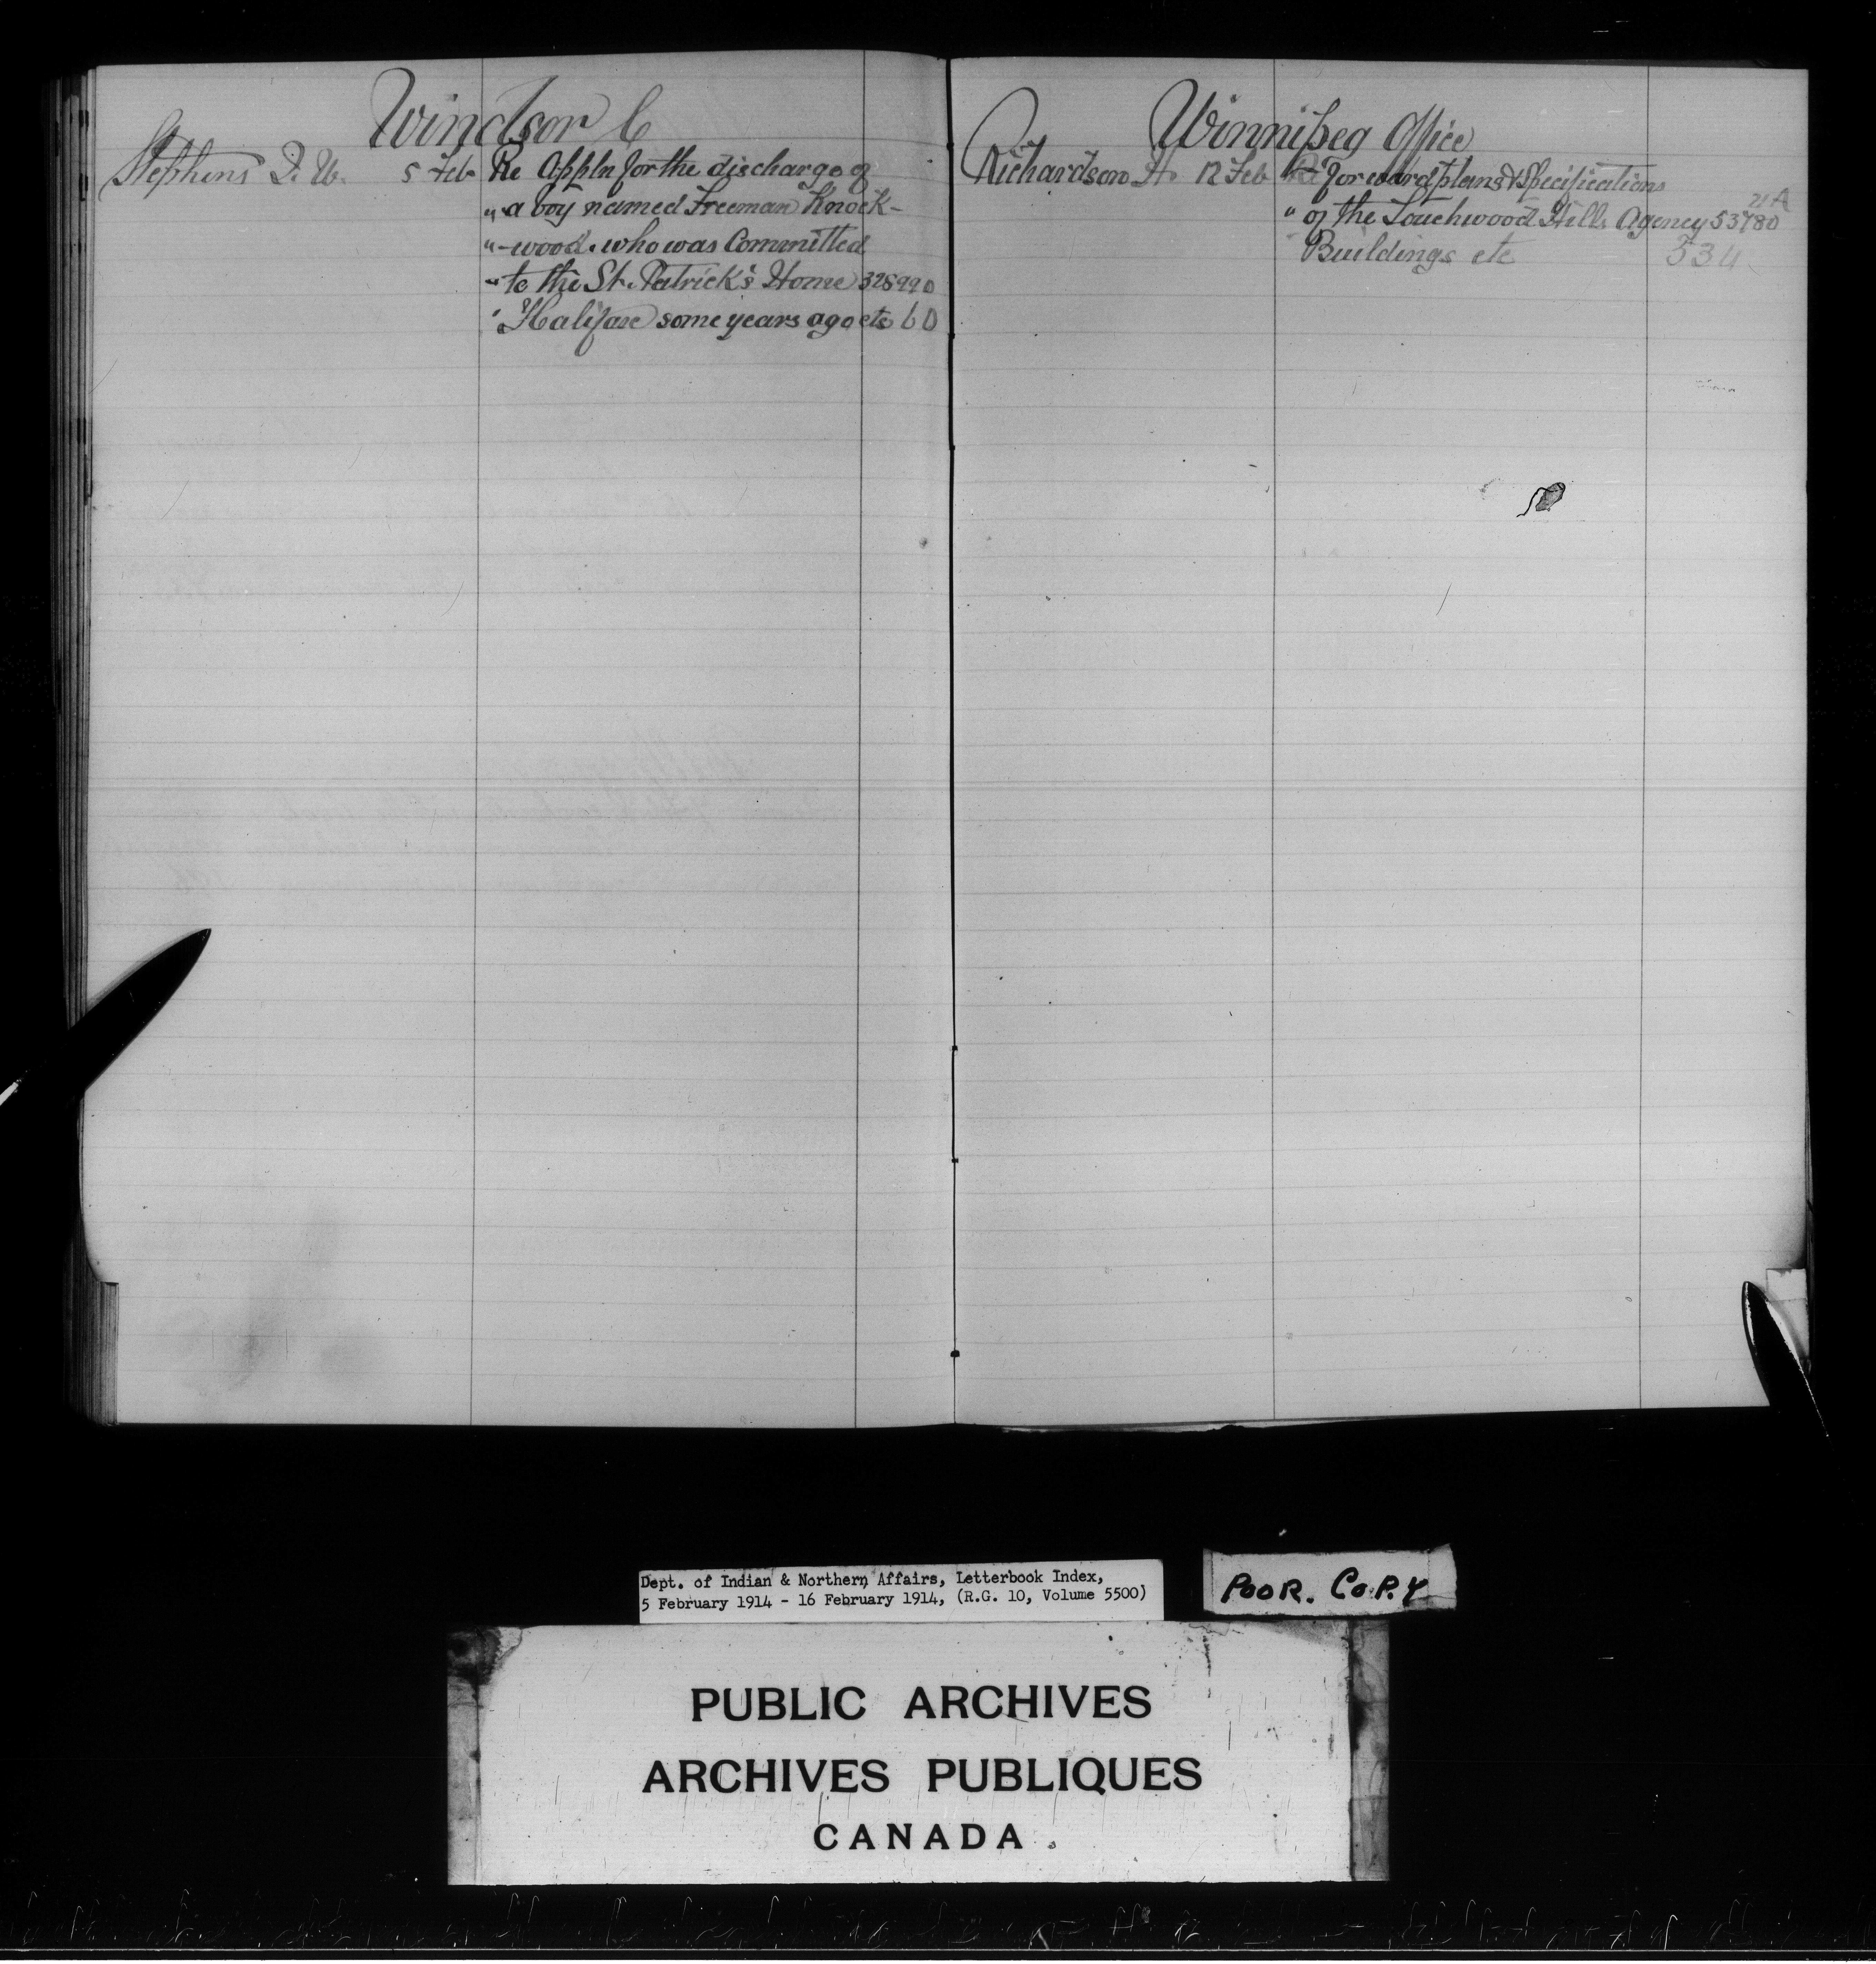 Windsor C
Stephens D. W. 5 Feb Re Appln for the discharge of
" a boy named Freeman Knock-
" -wood. who was Committed
" to the St. Patrick's Home 328990
" Halifax some years ago etc 60
Winnipeg Office
Richardson H. 12 Feb Re forward plans & Specifications
21A
" of the Touchwood Hills Agency 53780
Buildings etc 534
Dept. of Indian & Northern Affairs, Letterbook Index,
5 February 1914 - 16 February 1914, (R.G. 10, Volume 5500)
POOR. COPY
PUBLIC ARCHIVES
ARCHIVES PUBLIQUES
CANADA